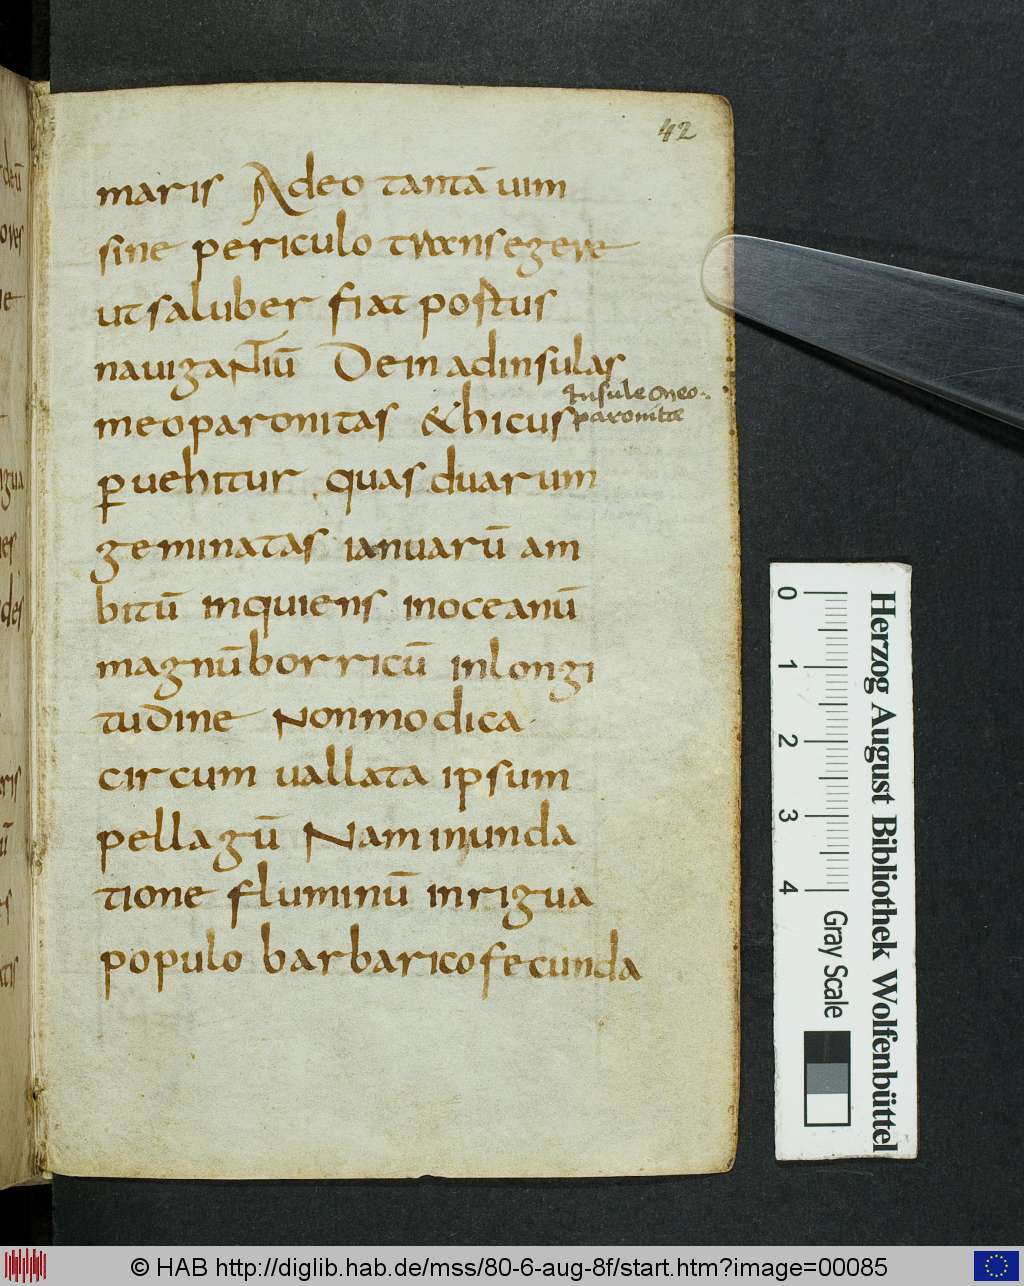 42
maris Adeo tantā uim
sine periculo transegere
ut saluber fiat postus
nauigatiū Dein ad insulas
meoparonitas & hicus
Insule meo-
paronitæ
ꝑuehitur . quas duarum
geminatas ianuarū am
bitū inquiens inoceanū
magnū borricū inlongi
tudine Non modica
circum uallata ipsum
pellagū Nam inunda
tione fluminū inrigua
populo barbarico fecunda
0 1 2 3 4
Gray Scale
Herzog August Bibliothek Wolfenbüttel
© HAB http://diglib.hab.de/mss/80-6-aug-8f/start.htm?image=00085